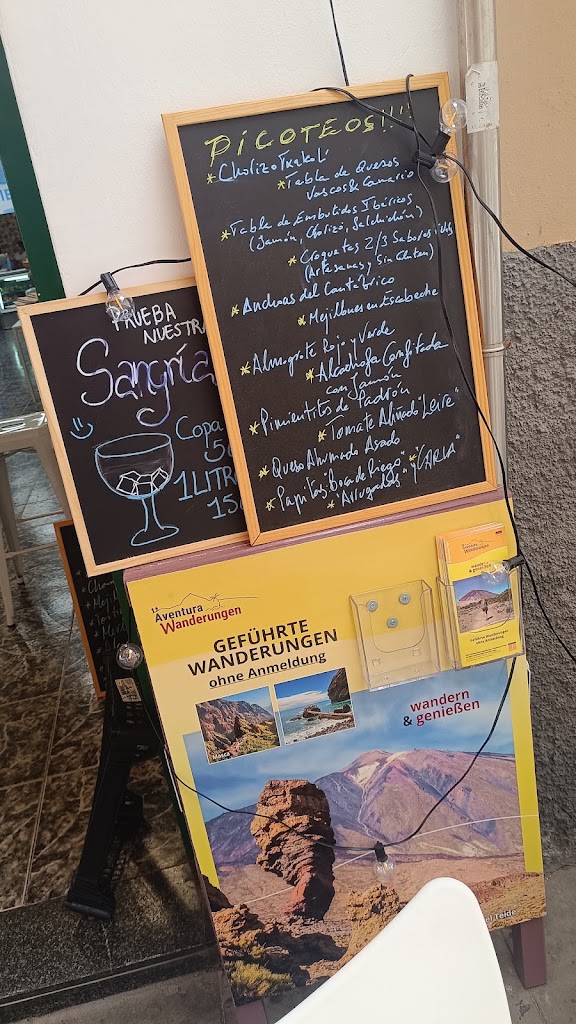 PICOTEOS!!!
* Chorizo Txakoli
* Tabla de Quesos
Vascos & Canario
* Tabla de Embutidos Ibéricos
(Jamón, Chorizo, Salchichón)
* Croquetas 2/3 Sabores
(Artesanas y Sin Gluten)
* Anchoas del Cantábrico
* Mejillones en Escabeche
* Almogrote Rojo y Verde
* Alcachofa Confitada
con Jamón
* Pimientitos de Padrón
* Tomate Aliñado "Leire"
* Queso Ahumado Asado
* Papitas "Boca de Fuego"
* "Arrugadas" y "CARLA"
PRUEBA
NUESTRA
Sangría
Copa
1 LITR
Aventura
Wanderungen
GEFÜHRTE
WANDERUNGEN
ohne Anmeldung
Masca
wandern
& genießen
wandern
& genießen
el Teide